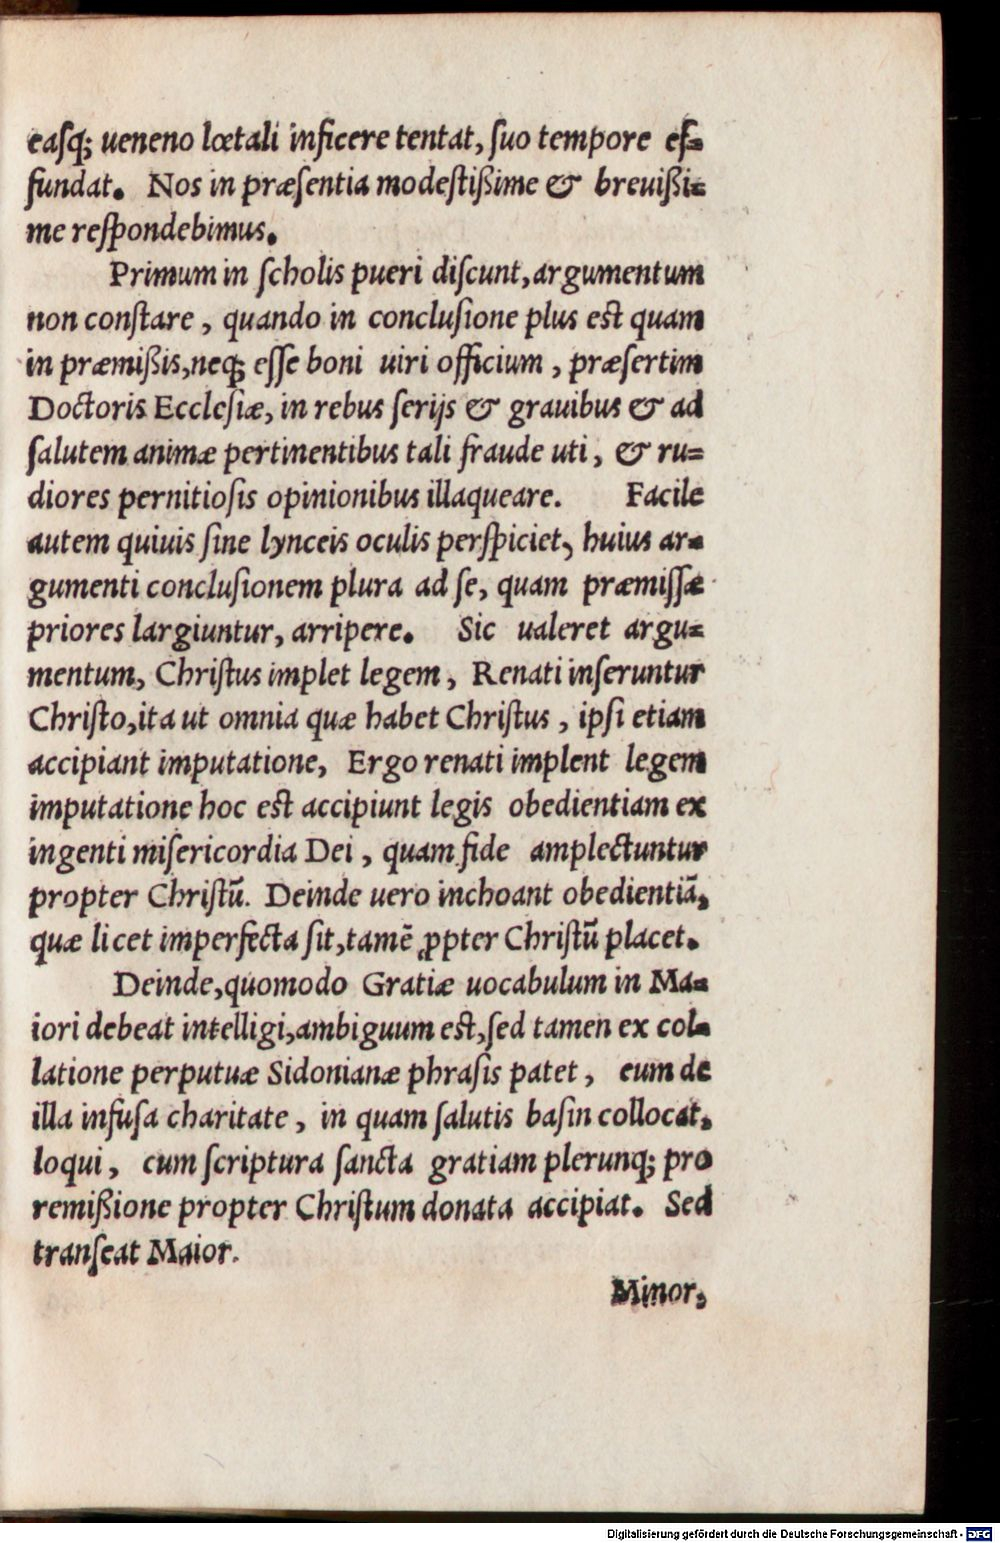 easq; ueneno lœtali inficere tentat, suo tempore ef=
fundat. Nos in præsentia modestißime & breuißi=
me respondebimus.
Primum in scholis pueri discunt, argumentum
non constare, quando in conclusione plus est quam
in præmißis, neq; esse boni uiri officium, præsertim
Doctoris Ecclesiæ, in rebus serijs & grauibus & ad
salutem animæ pertinentibus tali fraude uti, & ru=
diores pernitiosis opinionibus illaqueare. Facile
autem quiuis sine lynceis oculis perspiciet, huius ar=
gumenti conclusionem plura ad se, quam præmissæ
priores largiuntur, arripere. Sic ualeret argu=
mentum, Christus implet legem, Renati inseruntur
Christo, ita ut omnia quæ habet Christus, ipsi etiam
accipiant imputatione, Ergo renati implent legem
imputatione hoc est accipiunt legis obedientiam ex
ingenti misericordia Dei, quam fide amplectuntur
propter Christū. Deinde uero inchoant obedientiā,
quæ licet imperfecta sit, tamē ꝓpter Christū placet.
Deinde, quomodo Gratiæ uocabulum in Ma=
iori debeat intelligi, ambiguum est, sed tamen ex col=
latione perputuæ Sidonianæ phrasis patet, eum de
illa infusa charitate, in quam salutis basin collocat,
loqui, cum scriptura sancta gratiam plerunq; pro
remißione propter Christum donata accipiat. Sed
transeat Maior.
Minor,
Digitalisierung gefördert durch die Deutsche Forschungsgemeinschaft - DFG